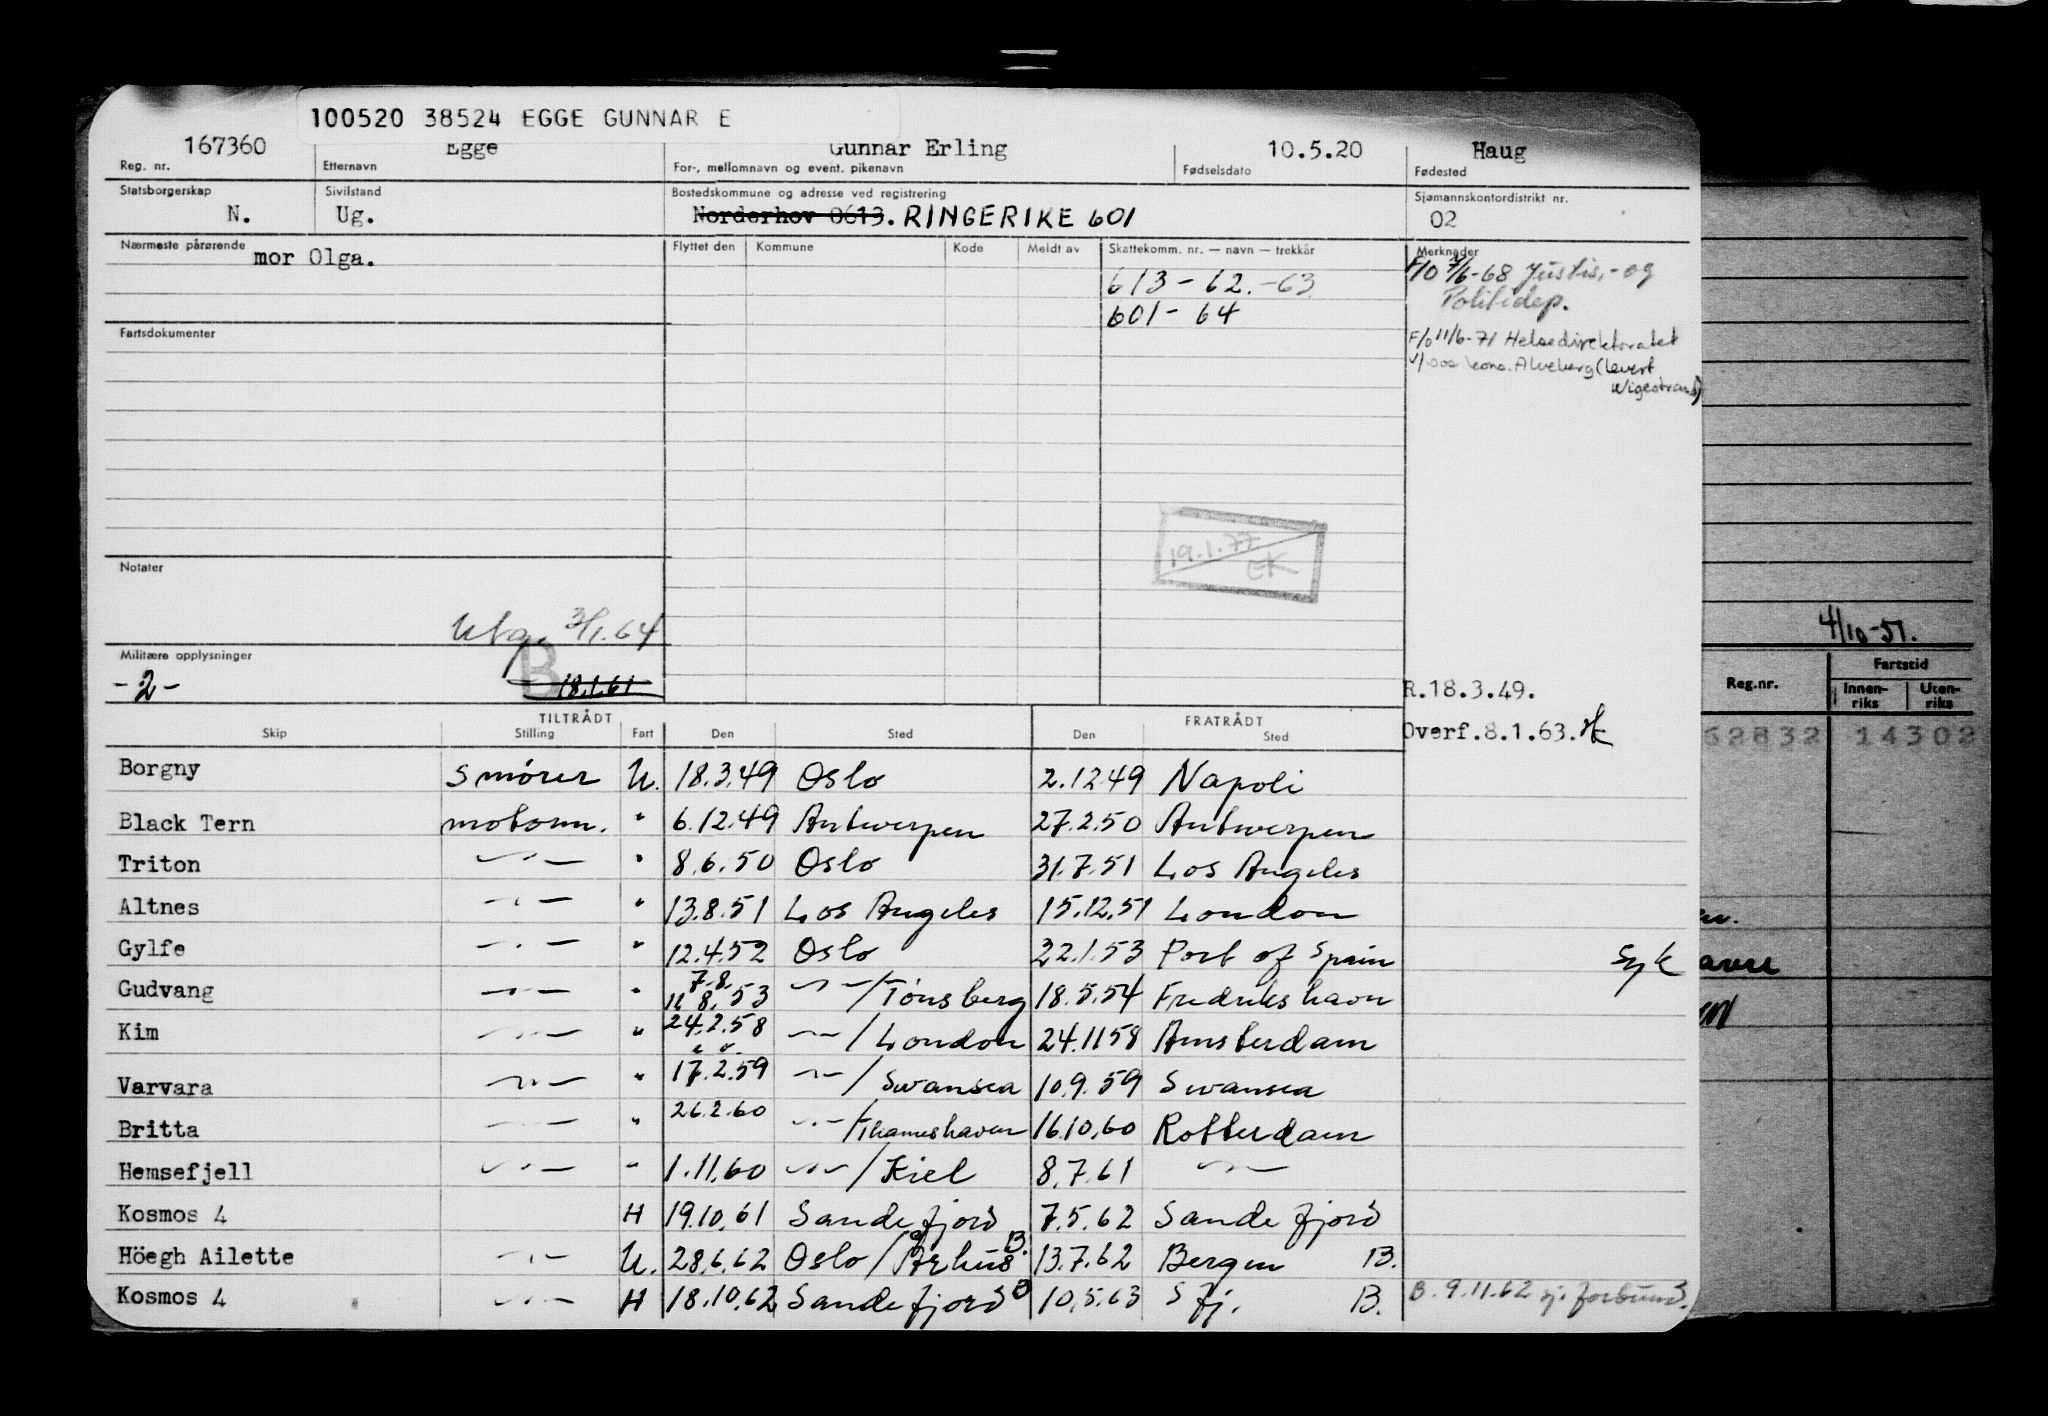 100520 38524 EGGE GUNNAR E
167360 Egge Gunnar Erling 10.5.20 Haug
Reg. nr. Etternavn For-, mellomnavn og event. pikenavn Fødselsdato Fødested
Statsborgerskap Sivilstand Bostedskommune og adresse ved registrering Sjømannskontordistrikt nr.
N. Ug. Norderhov 0613. RINGERIKE 601 02
Nærmeste pårørende Flyttet den Kommune Kode Meldt av Skattekomm. nr. — navn — trekkår Merknader
mor Olga.
613 - 62. -63
601 - 64
F/0 7/6-68 Justis,- og
Politidep.
Fartsdokumenter
F/0 11/6-71 Helsedirektoratet
Alveberg (levert
Wigestrand)
19.1.77
EK
Notater
Utg. 3/1.64
4/10-51.
Militære opplysninger
-2-
B
18.1.61
Reg.nr. Fartstid
Innen-riks Uten-riks
R.18.3.49.
Overf.8.1.63.
62832 14302
TILTRÅDT FRATRÅDT
Skip Stilling Fart Den Sted Den Sted
Borgny Smører U. 18.3.49 Oslo 2.12.49 Napoli
Black Tern motorm. " 6.12.49 Antwerpen 27.2.50 Antwerpen
Triton -"- " 8.6.50 Oslo 31.7.51 Los Angeles
Altnes -"- " 13.8.51 Los Angeles 15.12.51 London
Gylfe -"- " 12.4.52 Oslo 22.1.53 Port of Spain Syk
Gudvang -"- " 7.8. 11.8.53 -"-/Tønsberg 18.5.54 Fredrikshavn
Kim -"- " 24.2.58 -"-/London 24.11.58 Amsterdam
Varvara -"- " 17.2.59 -"-/Swansea 10.9.59 Swansea
Britta -"- " 26.2.60 -"-/Thameshaven 16.10.60 Rotterdam
Hemsefjell -"- " 1.11.60 -"-/Kiel 8.7.61 -"-
Kosmos 4 H 19.10.61 Sandefjord 7.5.62 Sandefjord
Höegh Ailette -"- U. 28.6.62 Oslo/Århus B. 13.7.62 Bergen B.
Kosmos 4 -"- H 18.10.62 Sandefjord B 10.5.63 Sfj. B. B. 9.11.62 sj. forbund.